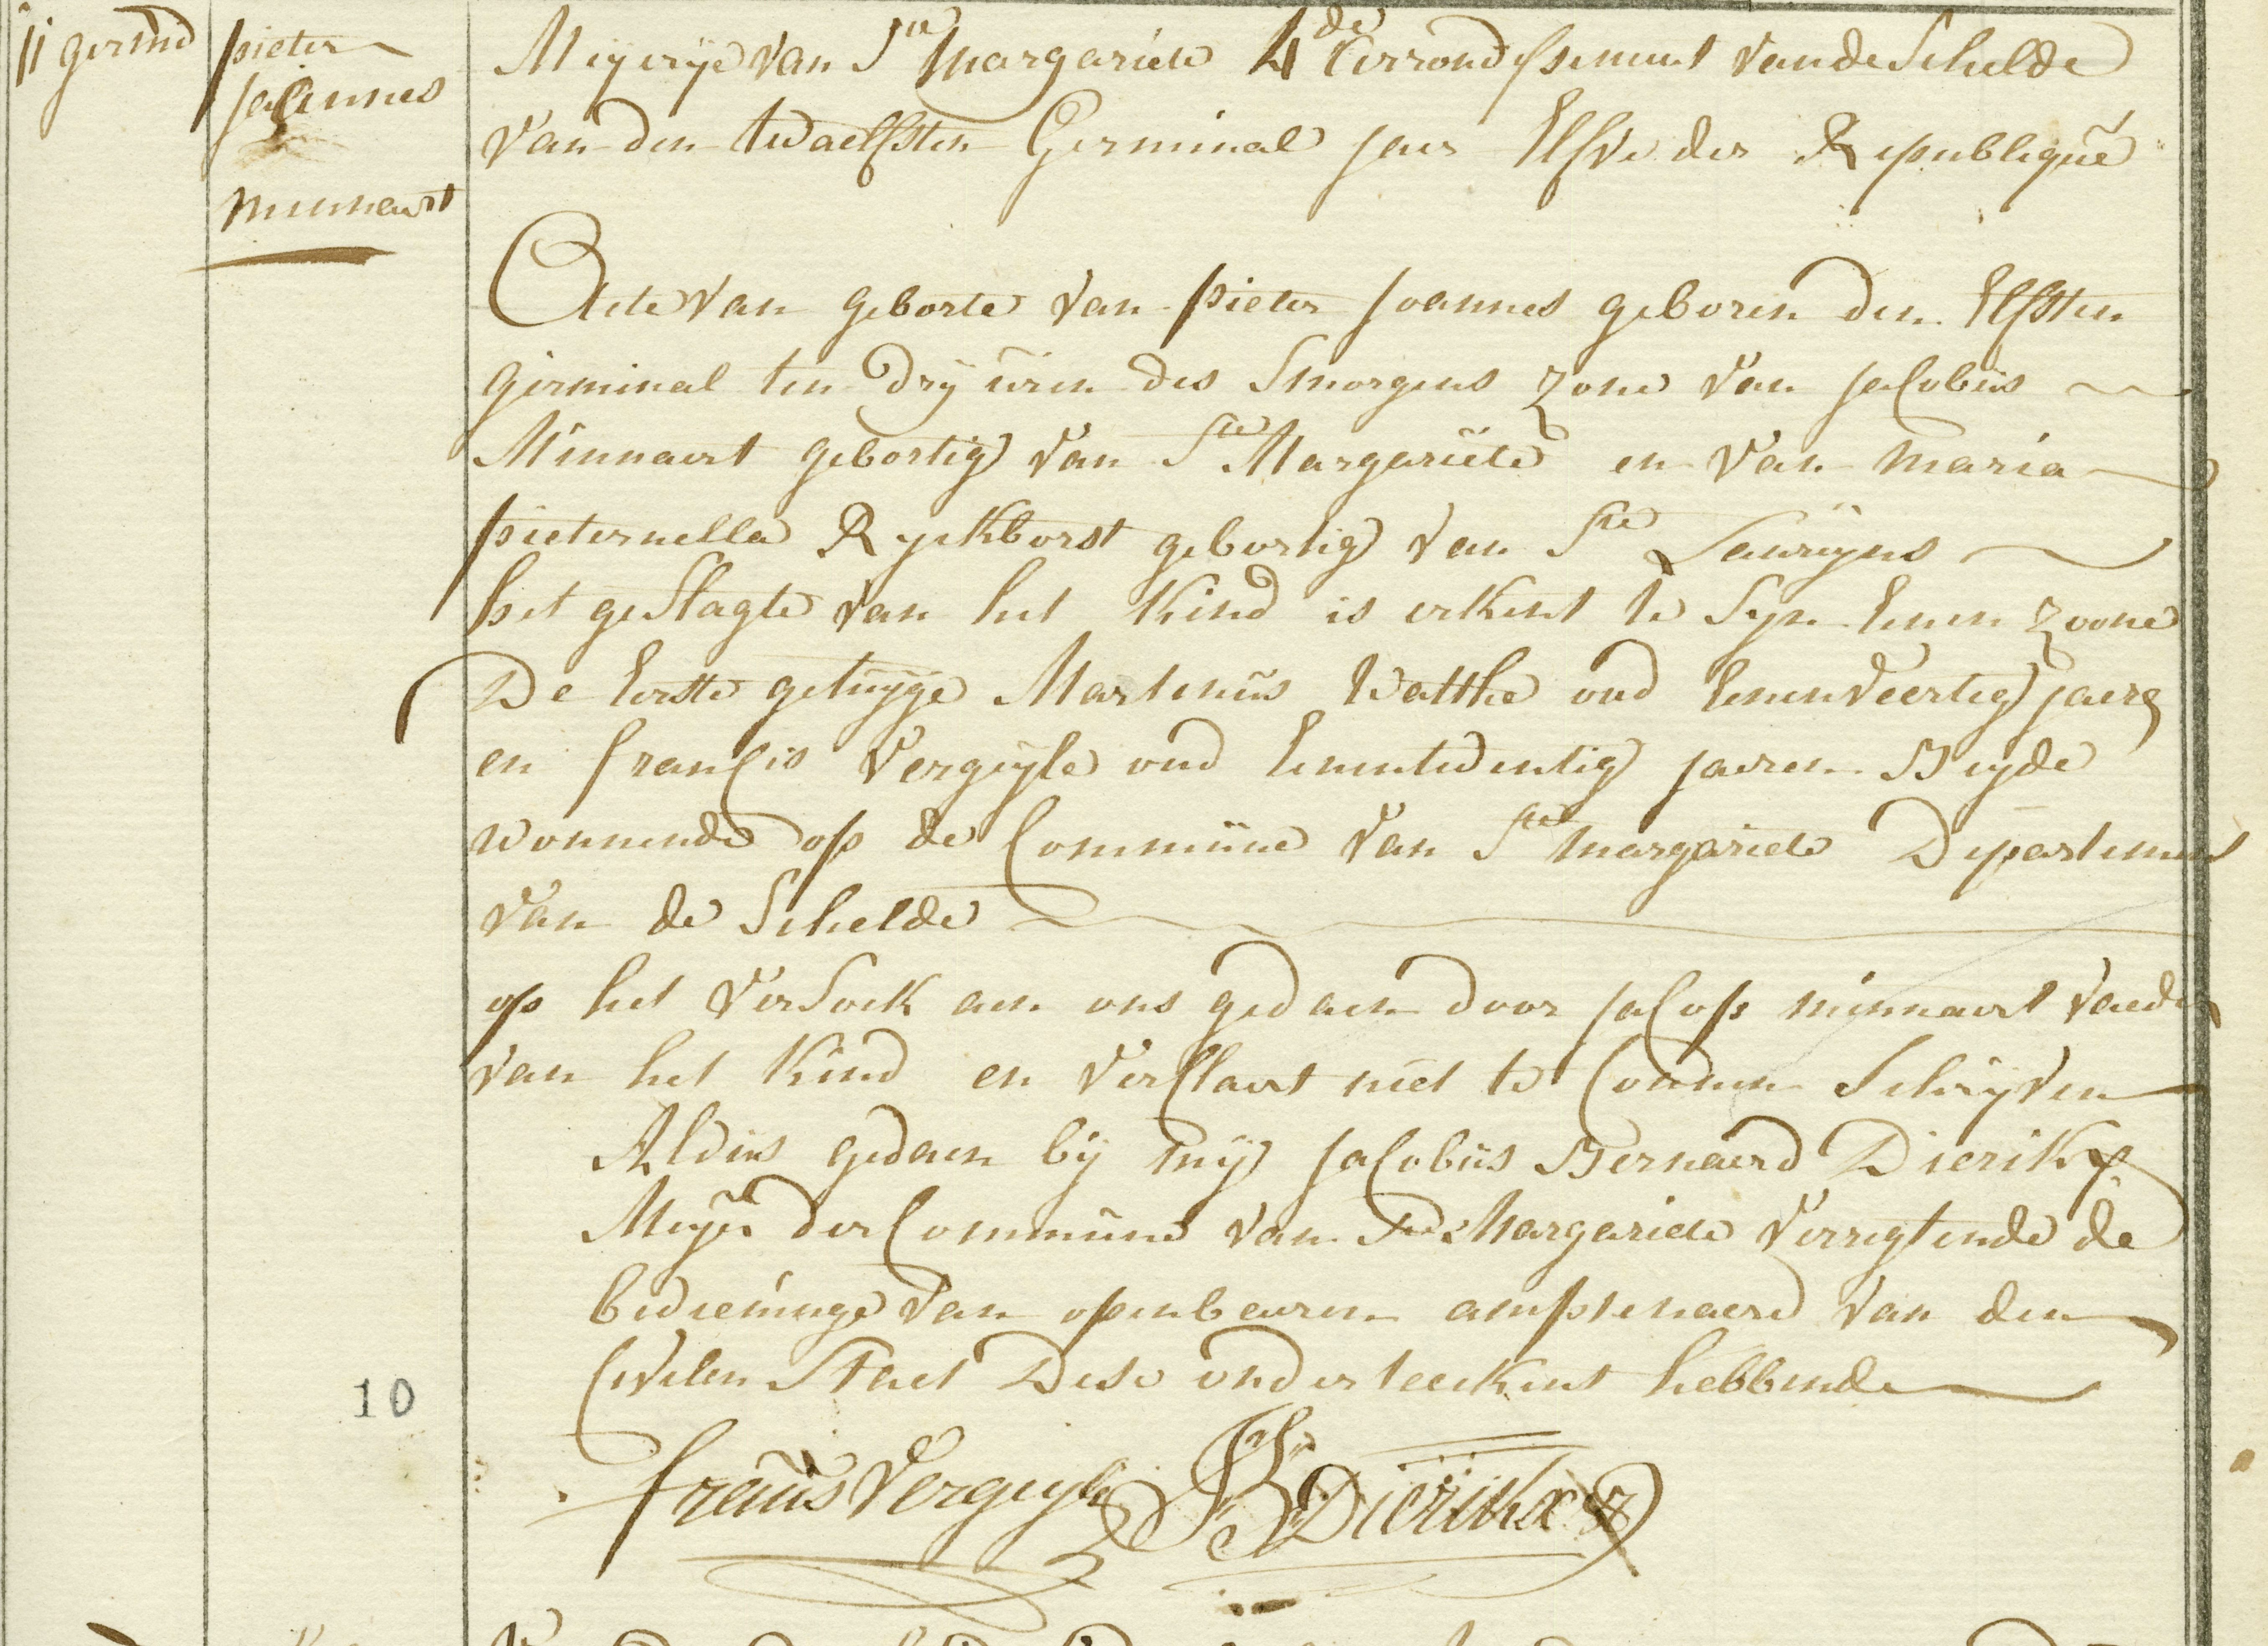 11 germd
pieter
joannes
minnaert
Meyerye van Ste Margariete 4de Arrondissement van de Schelde
van den twaelfsten Germinal jaer Elfve der Republique
Acte van geborte van pieter Joannes geboren den Elfsten
germinal ten dry uren des Smorgens zone van jacobus
Minnaert gebortig van Ste Margariete en van Maria
pieternella Ryckborst gebortig van Ste Laurÿns
het geslagte van het Kind is erkent te Syn Eenen zoone
De Eerste getuyge Martinus Watthé oud Eenenveertig jaeren
en francis Verguyle oud Eenentwentig jaeren Beyde
wonnende op de Commüne van Ste margariete Departement
van de Schelde
op het Versoek aen ons gedaen door jacop minnaert Vaeder
van het Kind en verclaert niet te Connen Schryven
Aldus gedaen by my jacobus Bernaerd Dierikx
Meyer der Commüne van Ste Margariete Verregtende de
bedieninge van openbaeren amptenaerd van den
Civilen Staet Dese onderteekent hebbende
10
francis Verguyle JB Dierikx